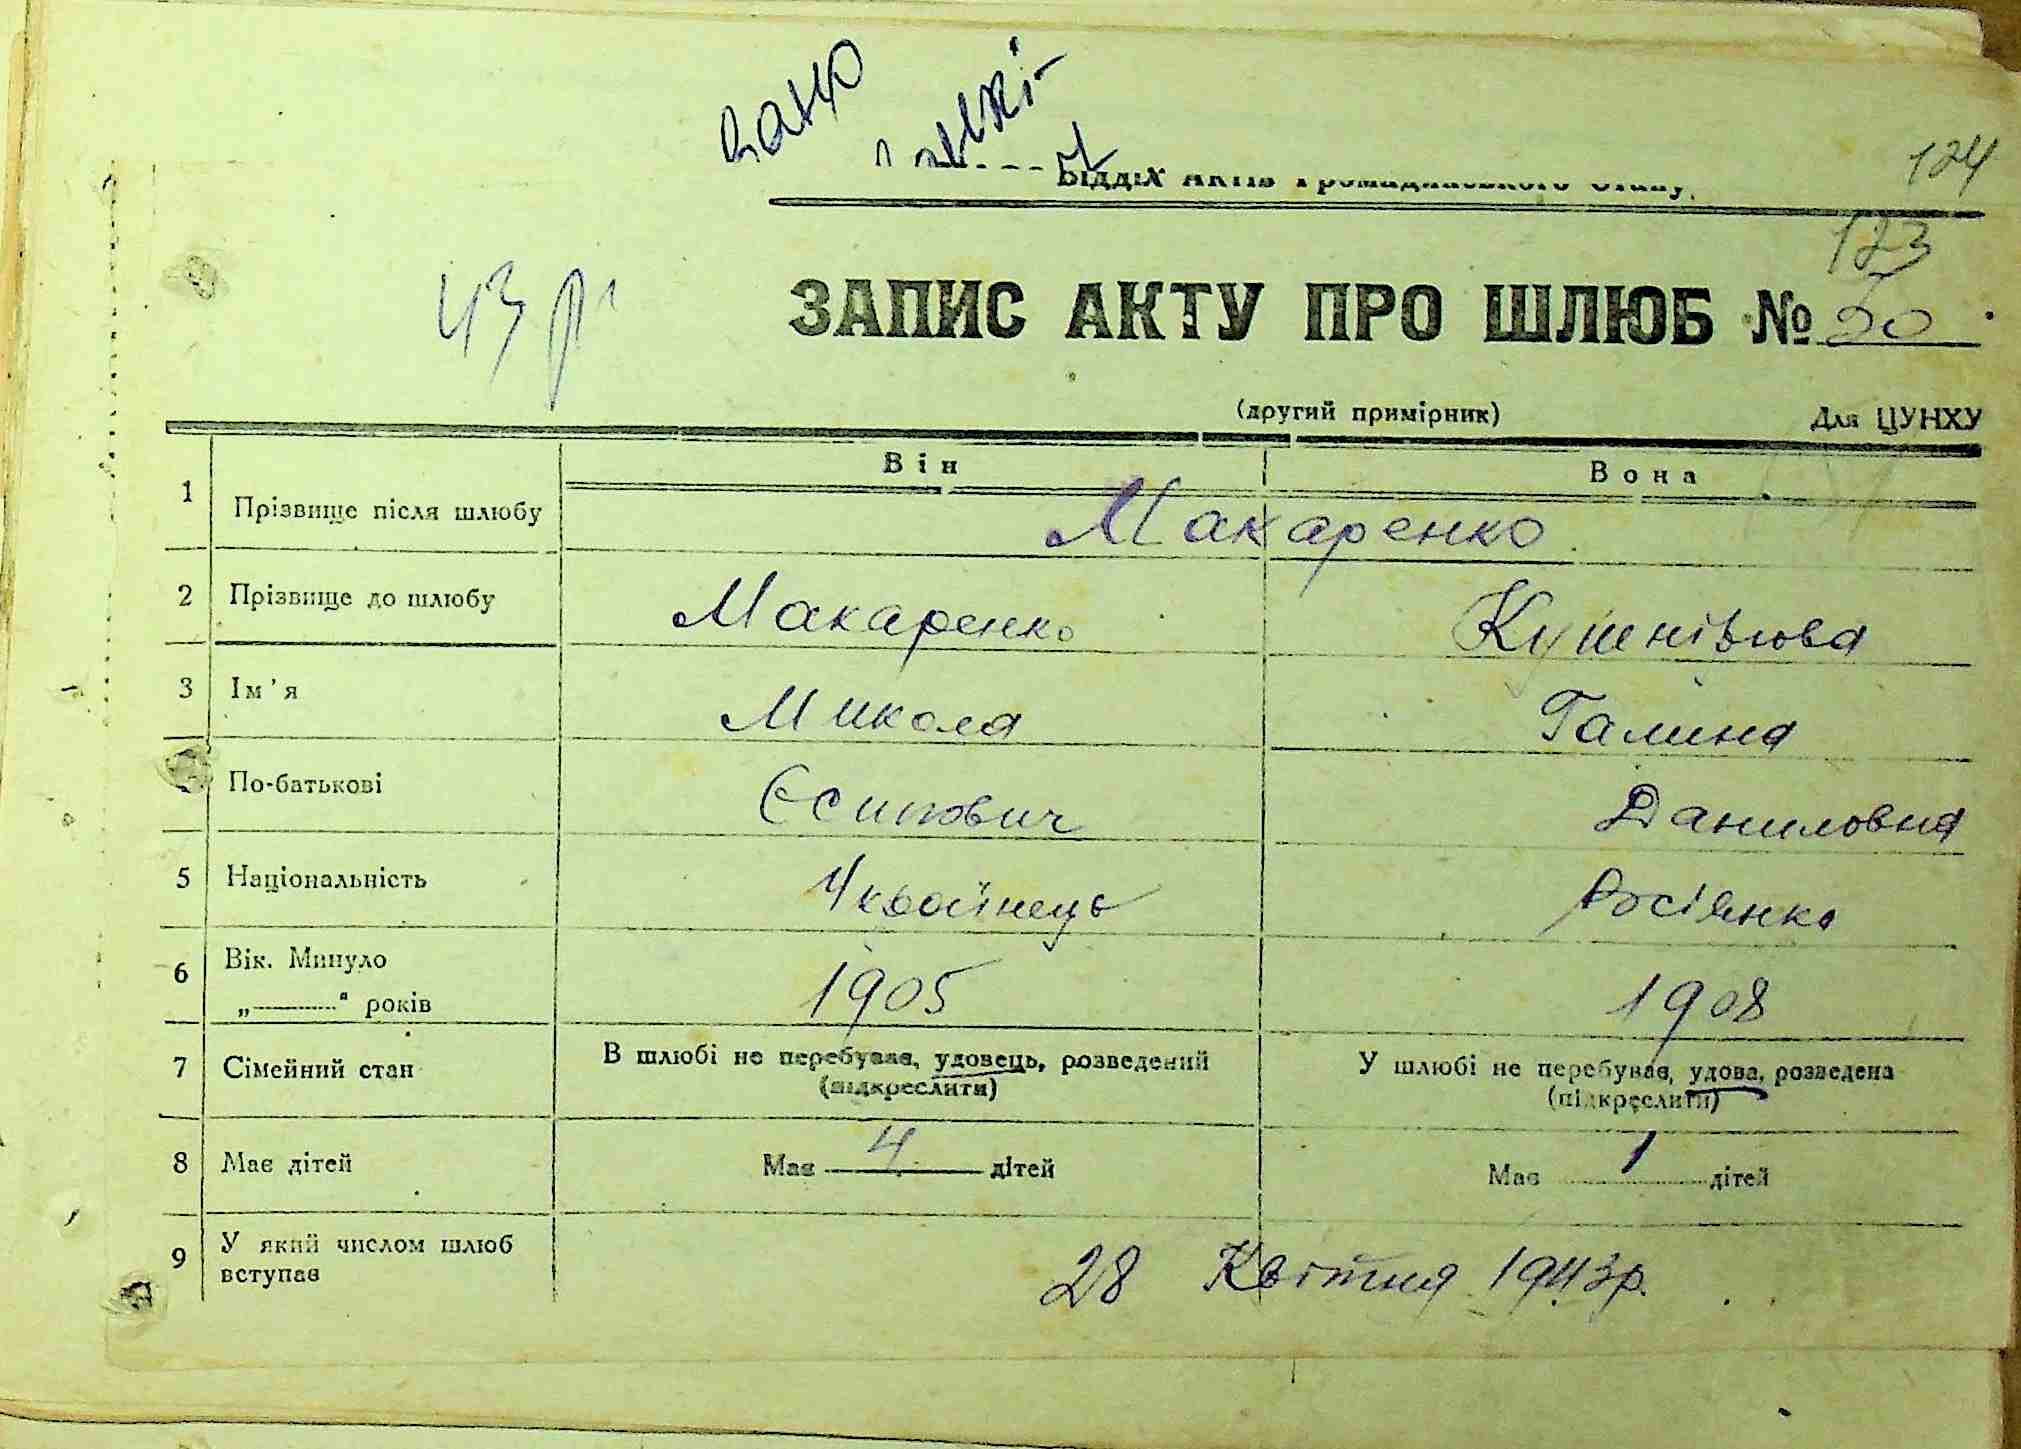 124
Відділ Актів Громадянського Стану
123
43 р.
ЗАПИС АКТУ ПРО ШЛЮБ № 20
(другий примірник) Для ЦУНХУ
Він Вона
1 Прізвище після шлюбу Макаренко
2 Прізвище до шлюбу Макаренко
3 Ім'я Микола Галина
По-батькові Єсипович Даниловна
5 Національність Українець Росіянка
6 Вік. Минуло 1905 1908
„———“ років
7 Сімейний стан В шлюбі не перебував, удовець, розведений У шлюбі не перебуває, удова, розведена
(підкреслити) (підкреслити)
8 Має дітей Має 4 дітей Має 1 дітей
9 У який числом шлюб вступає 28 Квітня 1943р.